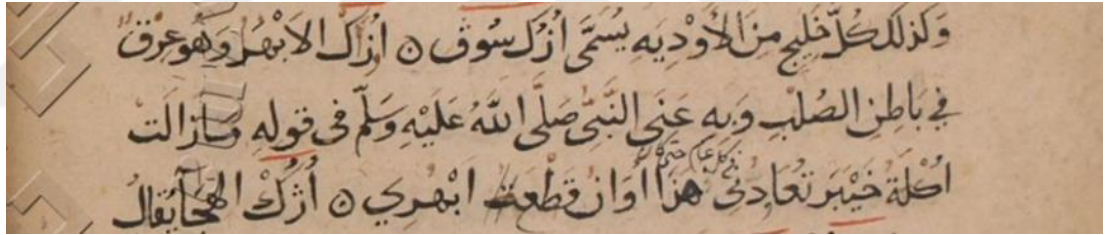 وَكَذلك كلّ خَلِيج مِنَ الأَوْدِيَهِ يُسَمَّى اُزُك سُوڤ ۞ اُزاك الاَبهَر وَهُوَ عِرْق
فِي بَاطِنِ الصُلْبِ وَبِهِ عَنَى النَّبِىُّ صَلَّى اللهُ عَلَيْهِ وَسَلّم فى قولِهِ مَا زَالَتْ
اُكْلَةُ خَيْبَر تُعَادِنِي فى كل عام حتى هذا أَوَانُ قَطَعَتْ ابْهَرِي ۞ اُزُكْ الهِجَا يُقالُ